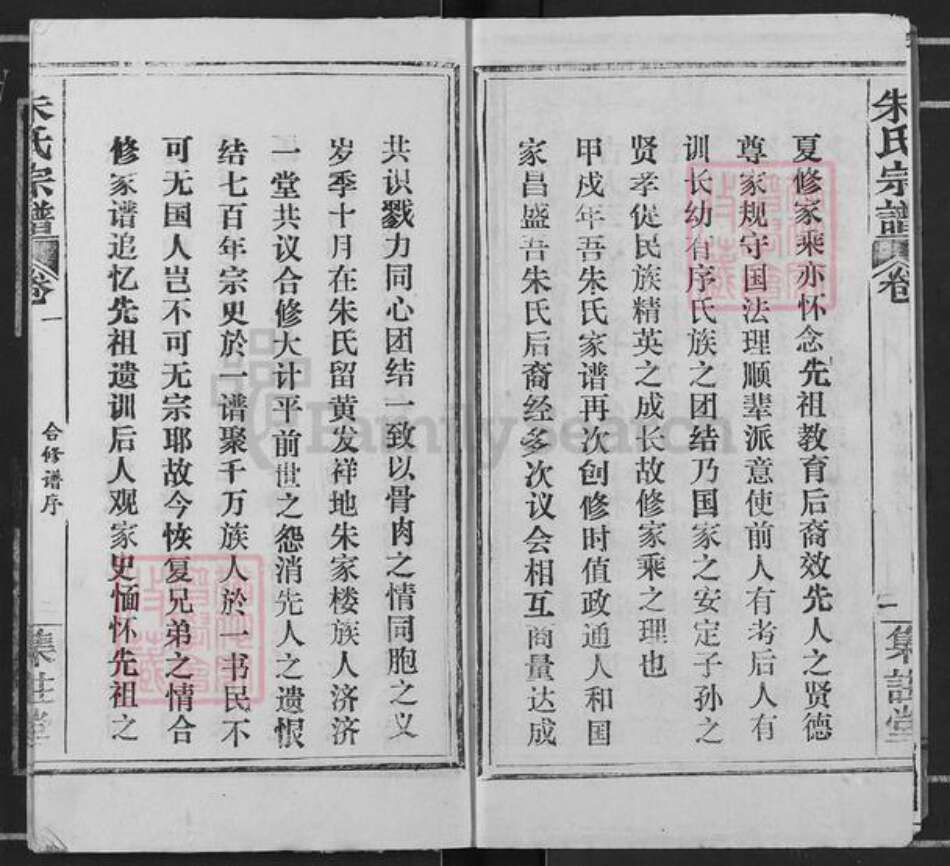 朱氏宗譜
卷
一
集註堂
夏修家乘亦怀念先祖教育后裔效先人之贤德
尊家规守国法理顺辈派意使前人有考后人有
训长幼有序氏族之团结乃国家之安定子孙之
贤孝促民族精英之成长故修家乘之理也
甲戍年吾朱氏家谱再次创修时值政通人和国
家昌盛吾朱氏后裔经多次议会相互商量达成
共识戮力同心团结一致以骨肉之情同胞之义
岁季十月在朱氏留黄发祥地朱家楼族人济济
一堂共议合修大计平前世之怨消先人之遗恨
结七百年宗史於一谱聚千万族人於一书民不
可无国人岂不可无宗耶故今恢复兄弟之情合
修家谱追忆先祖遗训后人观家史愐怀先祖之
朱氏宗譜
卷
一
合修谱序
FamilySearch